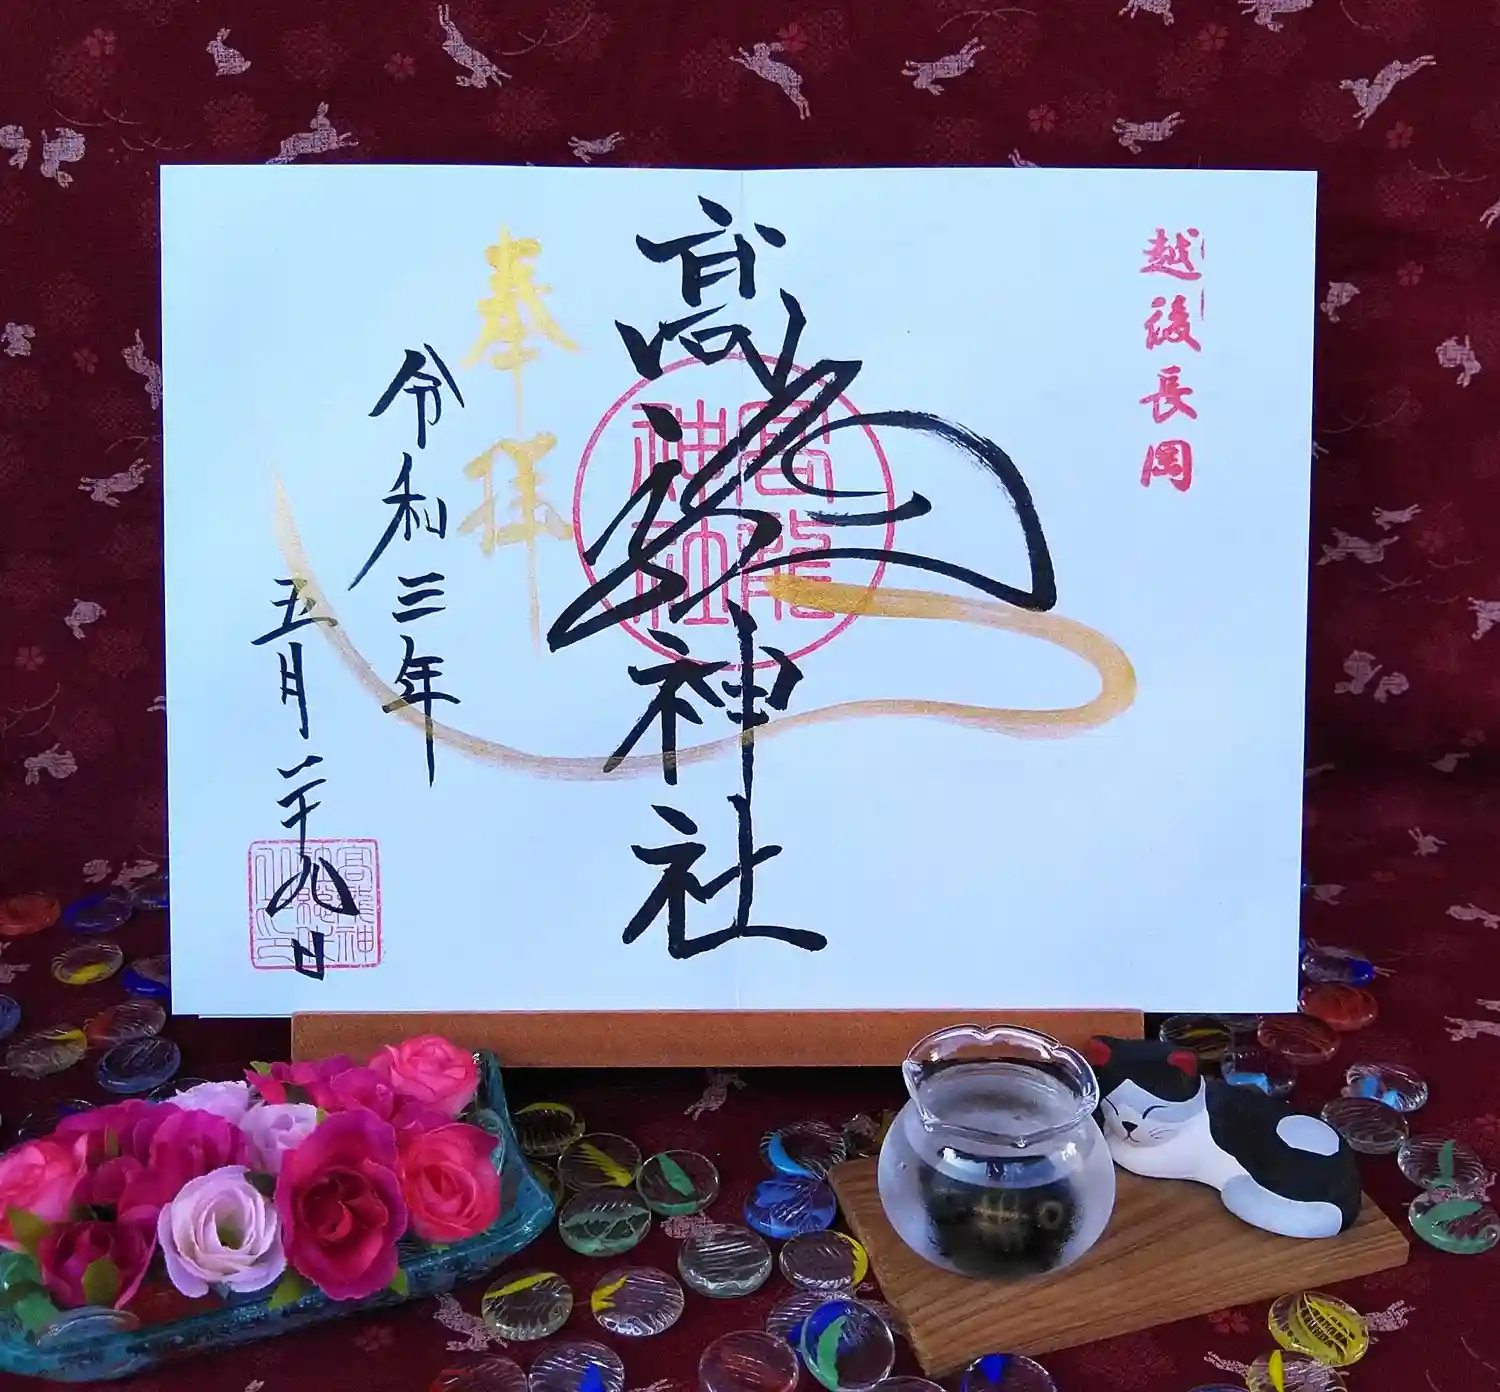 越後長岡
髙龍神社
高龍
神社
奉拝
令和三年
五月二十九日